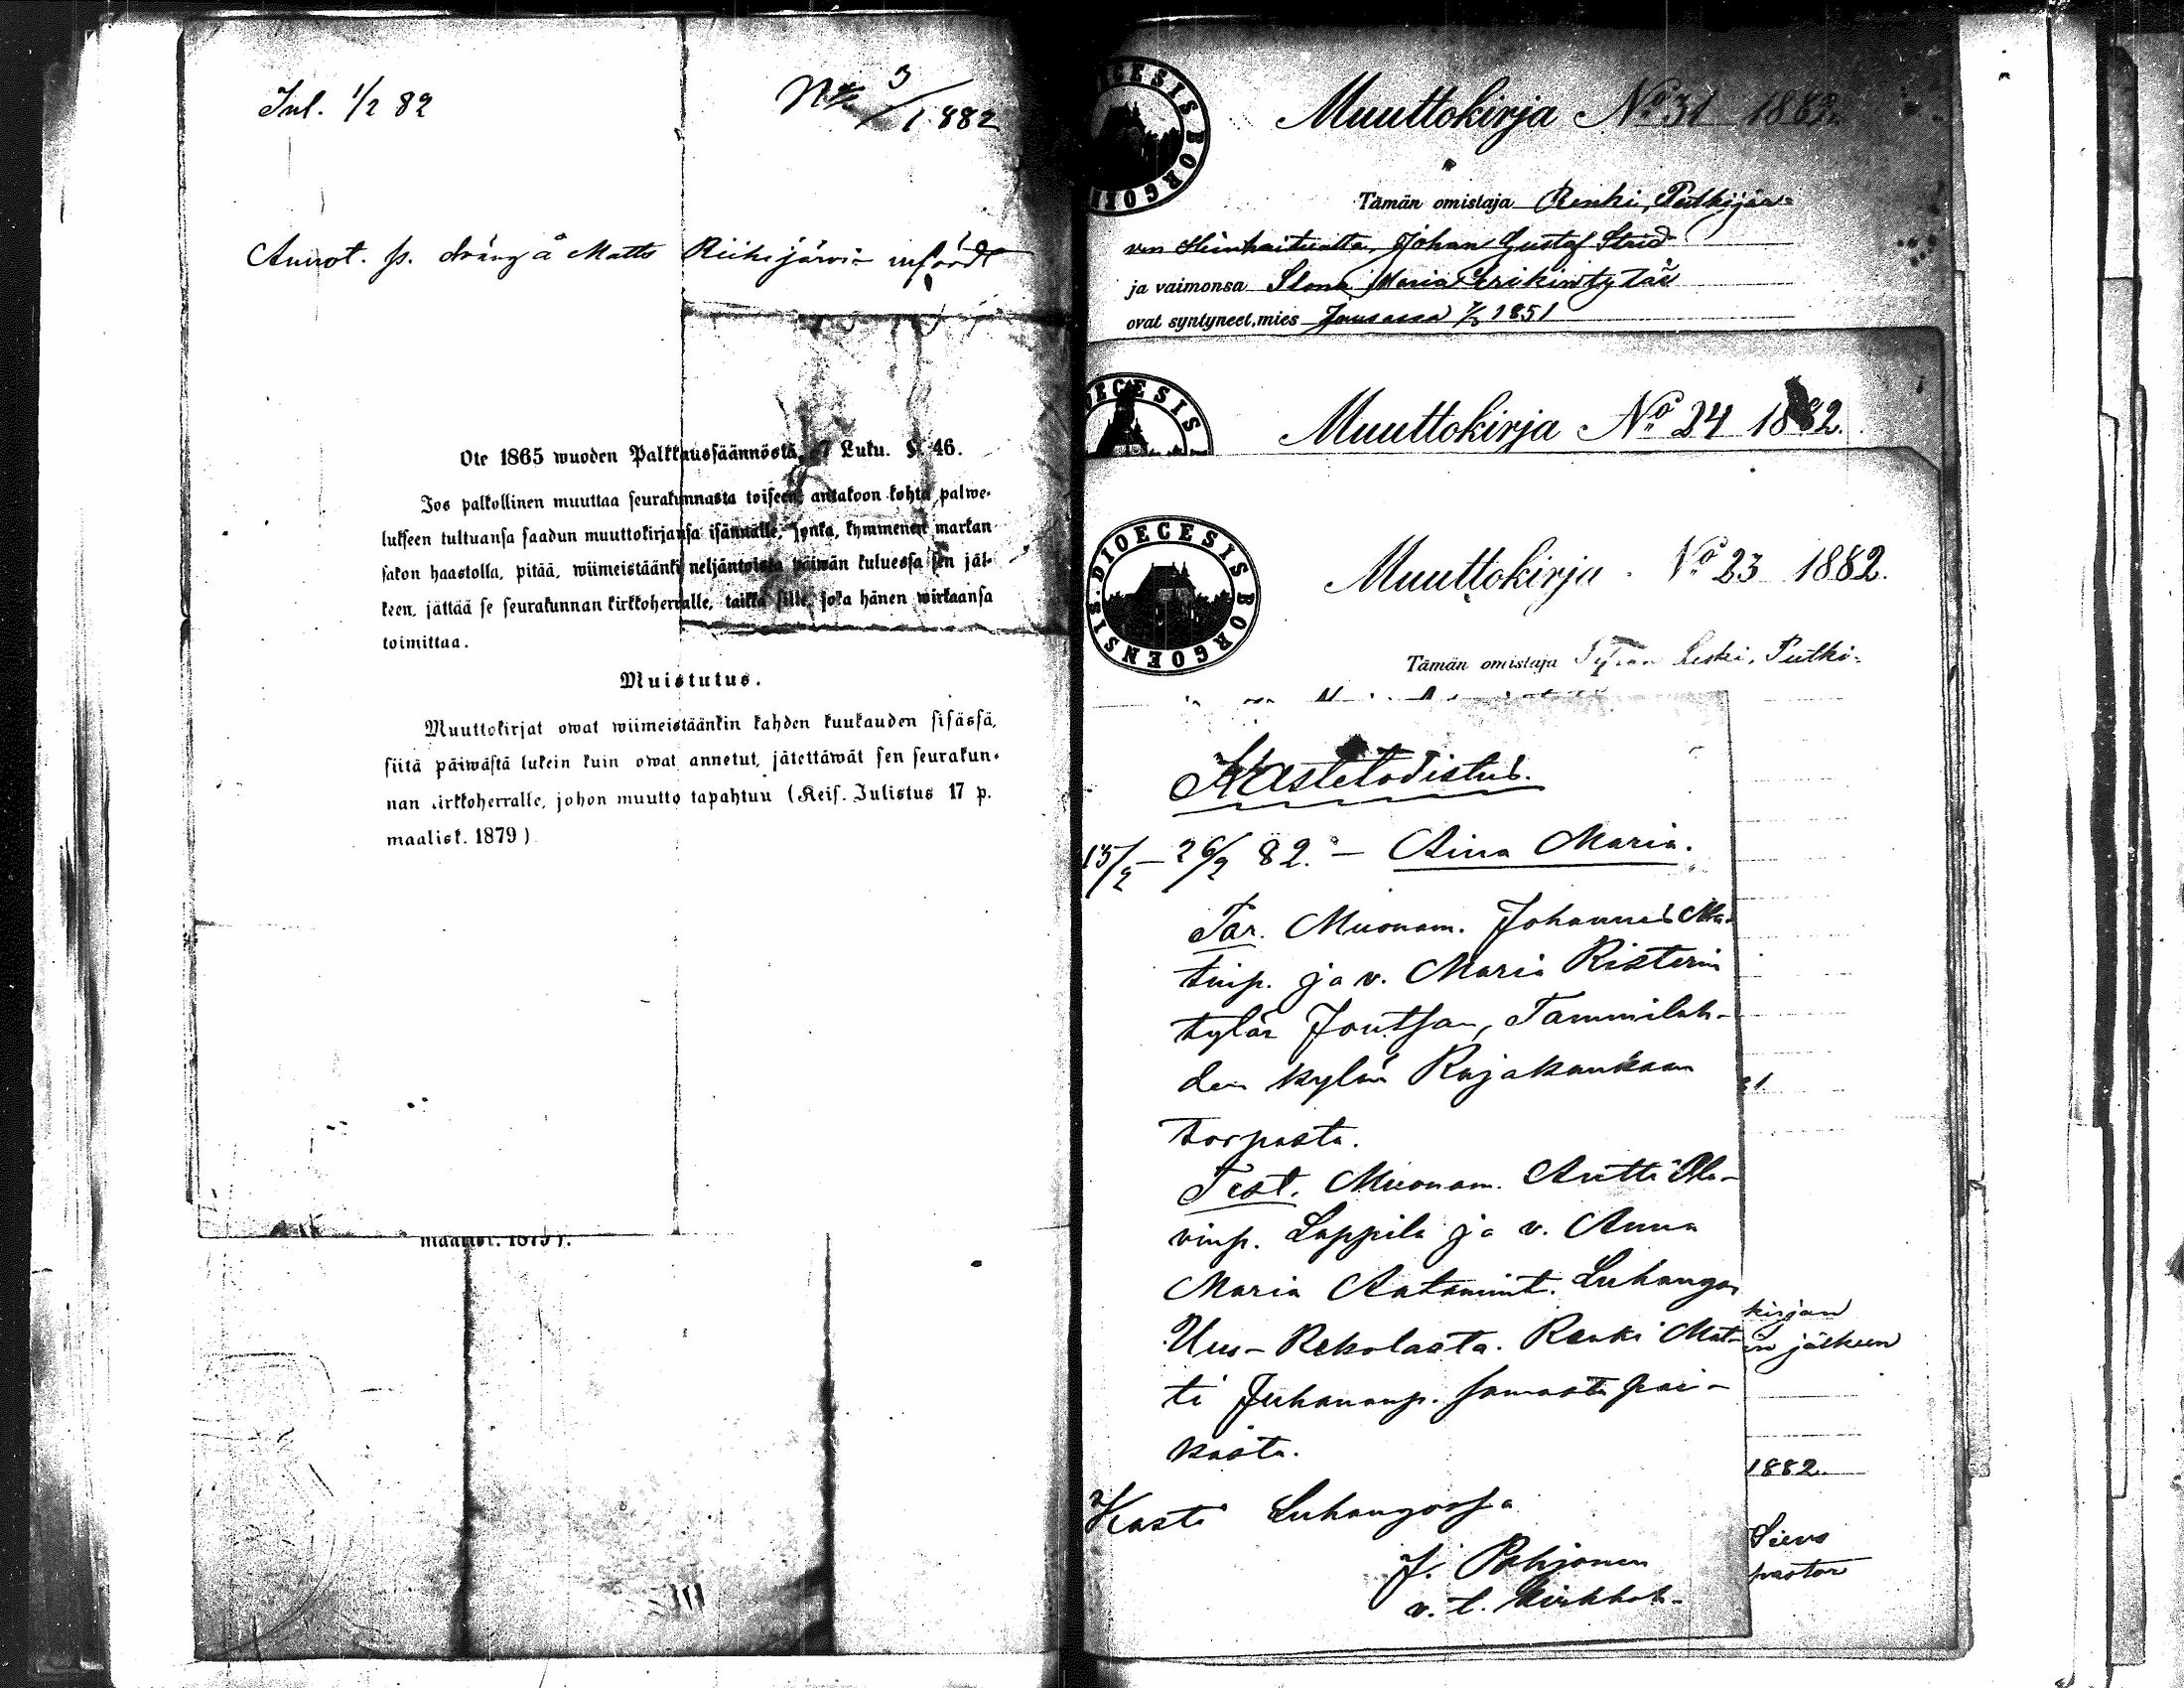 Inl. 1/2 82
No 3/1882
Annot. p. dräng å Matts Riihijärvi införd
Ote 1865 wuoden Palkkaussäännöstä, 7 Luku. §. 46.
Jos palkollinen muuttaa seurakunnasta toiseen, antakoon kohta palwe-
lukseen tultuansa saadun muuttokirjansa isännälle, jonka, kymmenen markan
sakon haastolla, pitää, wiimeistäänki neljäntoista päiwän kuluessa sen jäl-
keen, jättää se seurakunnan kirkkoherralle, taikka sille, joka hänen wirkaansa
toimittaa.
Muistutus.
Muuttokirjat owat wiimeistäänkin kahden kuukauden sisässä,
siitä päiwästä lukein kuin owat annetut, jätettäwät sen seurakun-
nan kirkkoherralle, johon muutto tapahtuu (Keis. Julistus 17 p.
maalisk. 1879)
maalisk. 1879).
DIOECESIS BORGOENSIS
Muuttokirja No 31 1882
Tämän omistaja Renki, Putkijär-
ven Johan Gustaf Strid
ja vaimonsa Maria Erikintytär
ovat syntyneet, mies 1851
DIOECESIS
Muuttokirja No 24 1882.
DIOECESIS BORGOENSIS.
Muuttokirja No 23 1882.
Tämän omistaja Leski, Putki-
Kastetodistus.
13/2 – 26/2 82. – Aina Maria.
Var. Muonam. Johannes Ma-
tinp. ja v. Maria Risterin
tytär Joutsan, Tammilah-
den kylän Rajakankaan
torpasta.
Test. Muonam. Antti Ola-
vinp. Lappila ja v. Anna
Maria Aatamint. Luhangon
Uus-Rekolasta. Renki Mat-
ti Juhananp. samasta pai-
kasta.
Kasti Luhangossa
J. Pohjonen
v. t. Kirkkoh.
kirjan
in jälkeen
1882.
Sievs
pastor